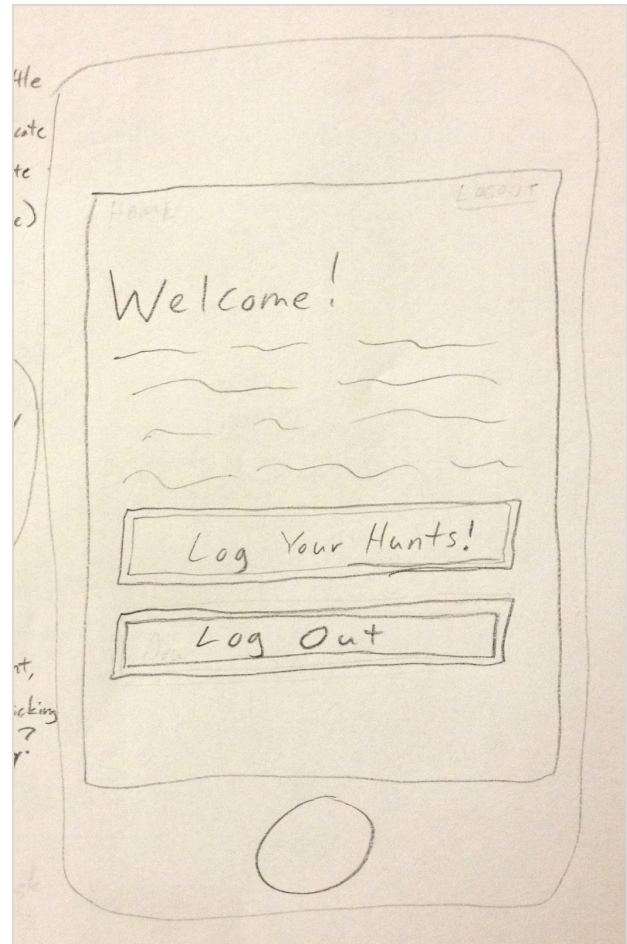 Home
Logout
Welcome!
Log Your Hunts!
Log Out